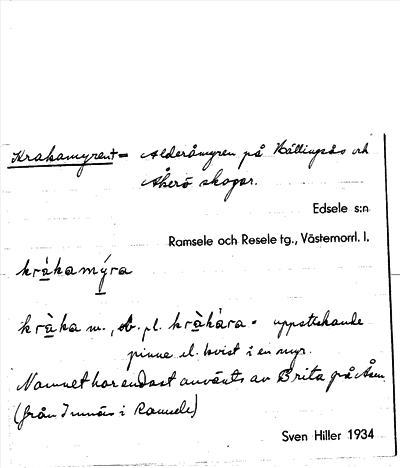 Krakamyren = Alderåmyren på Hällingsås och
Åkerö skogar.
Edsele s:n
Ramsele och Resele tg., Västernorrl. l.
kràkamýra
kràka m., ob. pl. kràkára = uppstickande
pinne el. kvist i en myr.
Namnet har endast använts av Brita på Åsen
(från Imnäs i Ramsele)
Sven Hiller 1934